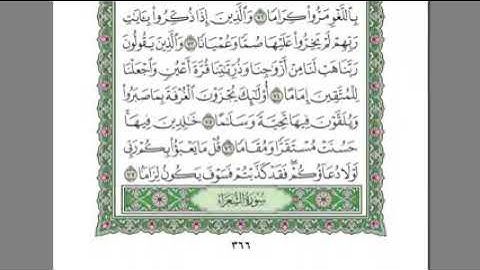 بِٱللَّغۡوِ مَرُّواْ كِرَامٗا ٧٢ وَٱلَّذِينَ إِذَا ذُكِّرُواْ بِـَٔايَٰتِ
رَبِّهِمۡ لَمۡ يَخِرُّواْ عَلَيۡهَا صُمّٗا وَعُمۡيَانٗا ٧٣ وَٱلَّذِينَ يَقُولُونَ
رَبَّنَا هَبۡ لَنَا مِنۡ أَزۡوَٰجِنَا وَذُرِّيَّٰتِنَا قُرَّةَ أَعۡيُنٖ وَٱجۡعَلۡنَا
لِلۡمُتَّقِينَ إِمَامًا ٧٤ أُوْلَٰٓئِكَ يُجۡزَوۡنَ ٱلۡغُرۡفَةَ بِمَا صَبَرُواْ
وَيُلَقَّوۡنَ فِيهَا تَحِيَّةٗ وَسَلَٰمًا ٧٥ خَٰلِدِينَ فِيهَاۚ
حَسُنَتۡ مُسۡتَقَرّٗا وَمُقَامٗا ٧٦ قُلۡ مَا يَعۡبَؤُاْ بِكُمۡ رَبِّي
لَوۡلَا دُعَآؤُكُمۡۖ فَقَدۡ كَذَّبۡتُمۡ فَسَوۡفَ يَكُونُ لِزَامَۢا ٧٧
سُورَةُ الشُّعَرَاءِ
٣٦٦